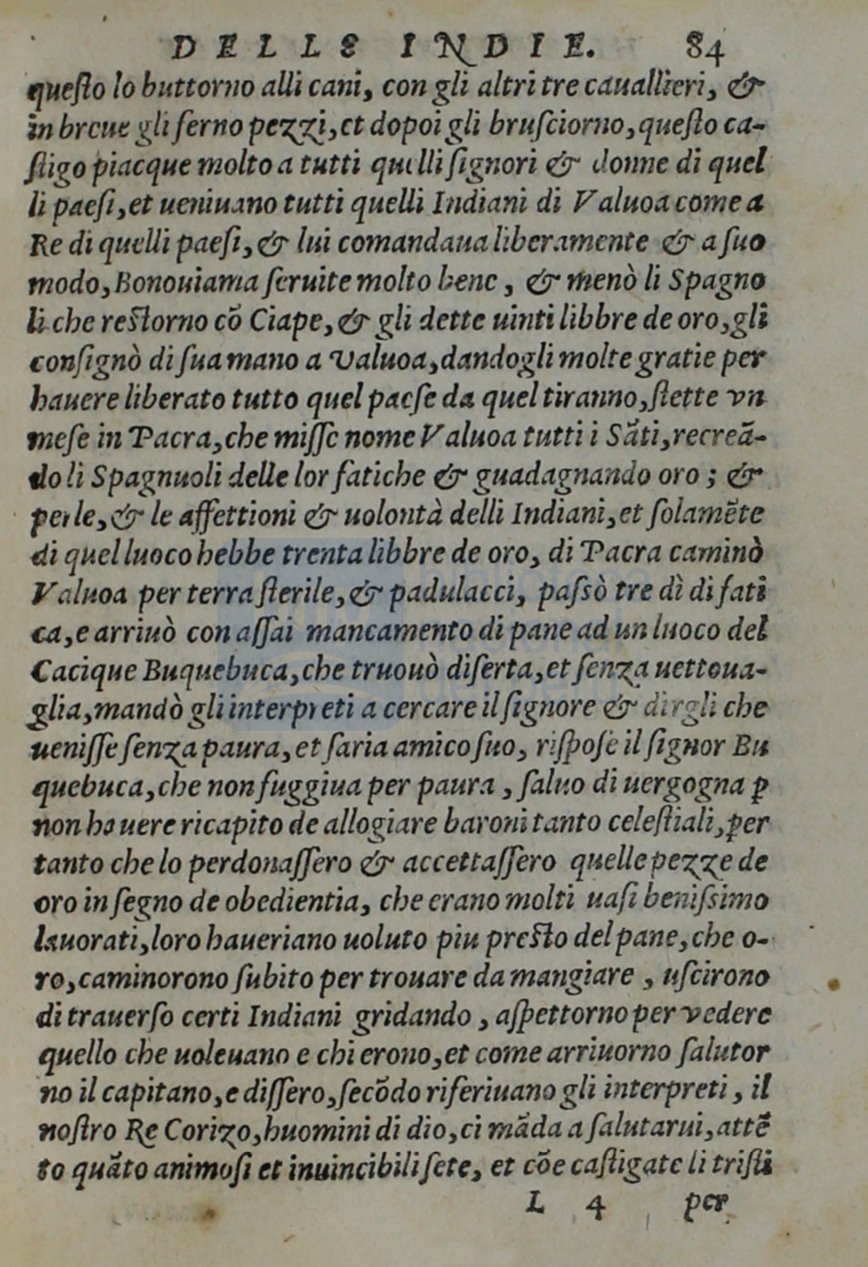 DELLE INDIE. 84
questo lo buttorno alli cani, con gli altri tre cauallieri, &
in breue gli ferno pezzi, et dopoi gli brusciorno, questo ca-
stigo piacque molto a tutti quelli signori & donne di quel
li paesi, et ueniuano tutti quelli Indiani di Valuoa come a
Re di quelli paesi, & lui comandaua liberamente & a suo
modo, Bonouiama seruite molto bene, & menò li Spagno
li che restorno cõ Ciape, & gli dette uinti libbre de oro, gli
consignò di sua mano a Valuoa, dandogli molte gratie per
hauere liberato tutto quel paese da quel tiranno, stette vn
mese in Pacra, che misse nome Valuoa tutti i Sãti, recreã-
do li Spagnuoli delle lor fatiche & guadagnando oro; &
perle, & le affettioni & uolontà delli Indiani, et solamẽte
di quel luoco hebbe trenta libbre de oro, di Pacra caminò
Valuoa per terra sterile, & padulacci, passò tre dì di fati
ca, e arriuò con assai mancamento di pane ad un luoco del
Cacique Buquebuca, che truouò diserta, et senza uettoua-
glia, mandò gli interpreti a cercare il signore & dirgli che
uenisse senza paura, et saria amico suo, rispose il signor Bu
quebuca, che non fuggiua per paura, saluo di uergogna ꝑ
non hauere ricapito de allogiare baroni tanto celestiali, per
tanto che lo perdonassero & accettassero quelle pezze de
oro in segno de obedientia, che erano molti uasi benissimo
lauorati, loro haueriano uoluto piu presto del pane, che o-
ro, caminorono subito per trouare da mangiare, uscirono
di trauerso certi Indiani gridando, aspettorno per vedere
quello che uoleuano e chi erono, et come arriuorno salutor
no il capitano, e dissero, secõdo riferiuano gli interpreti, il
nostro Re Corizo, huomini di dio, ci mãda a salutarui, attẽ
to quãto animosi et inuincibili sete, et cõe castigate li tristi
L 4 per